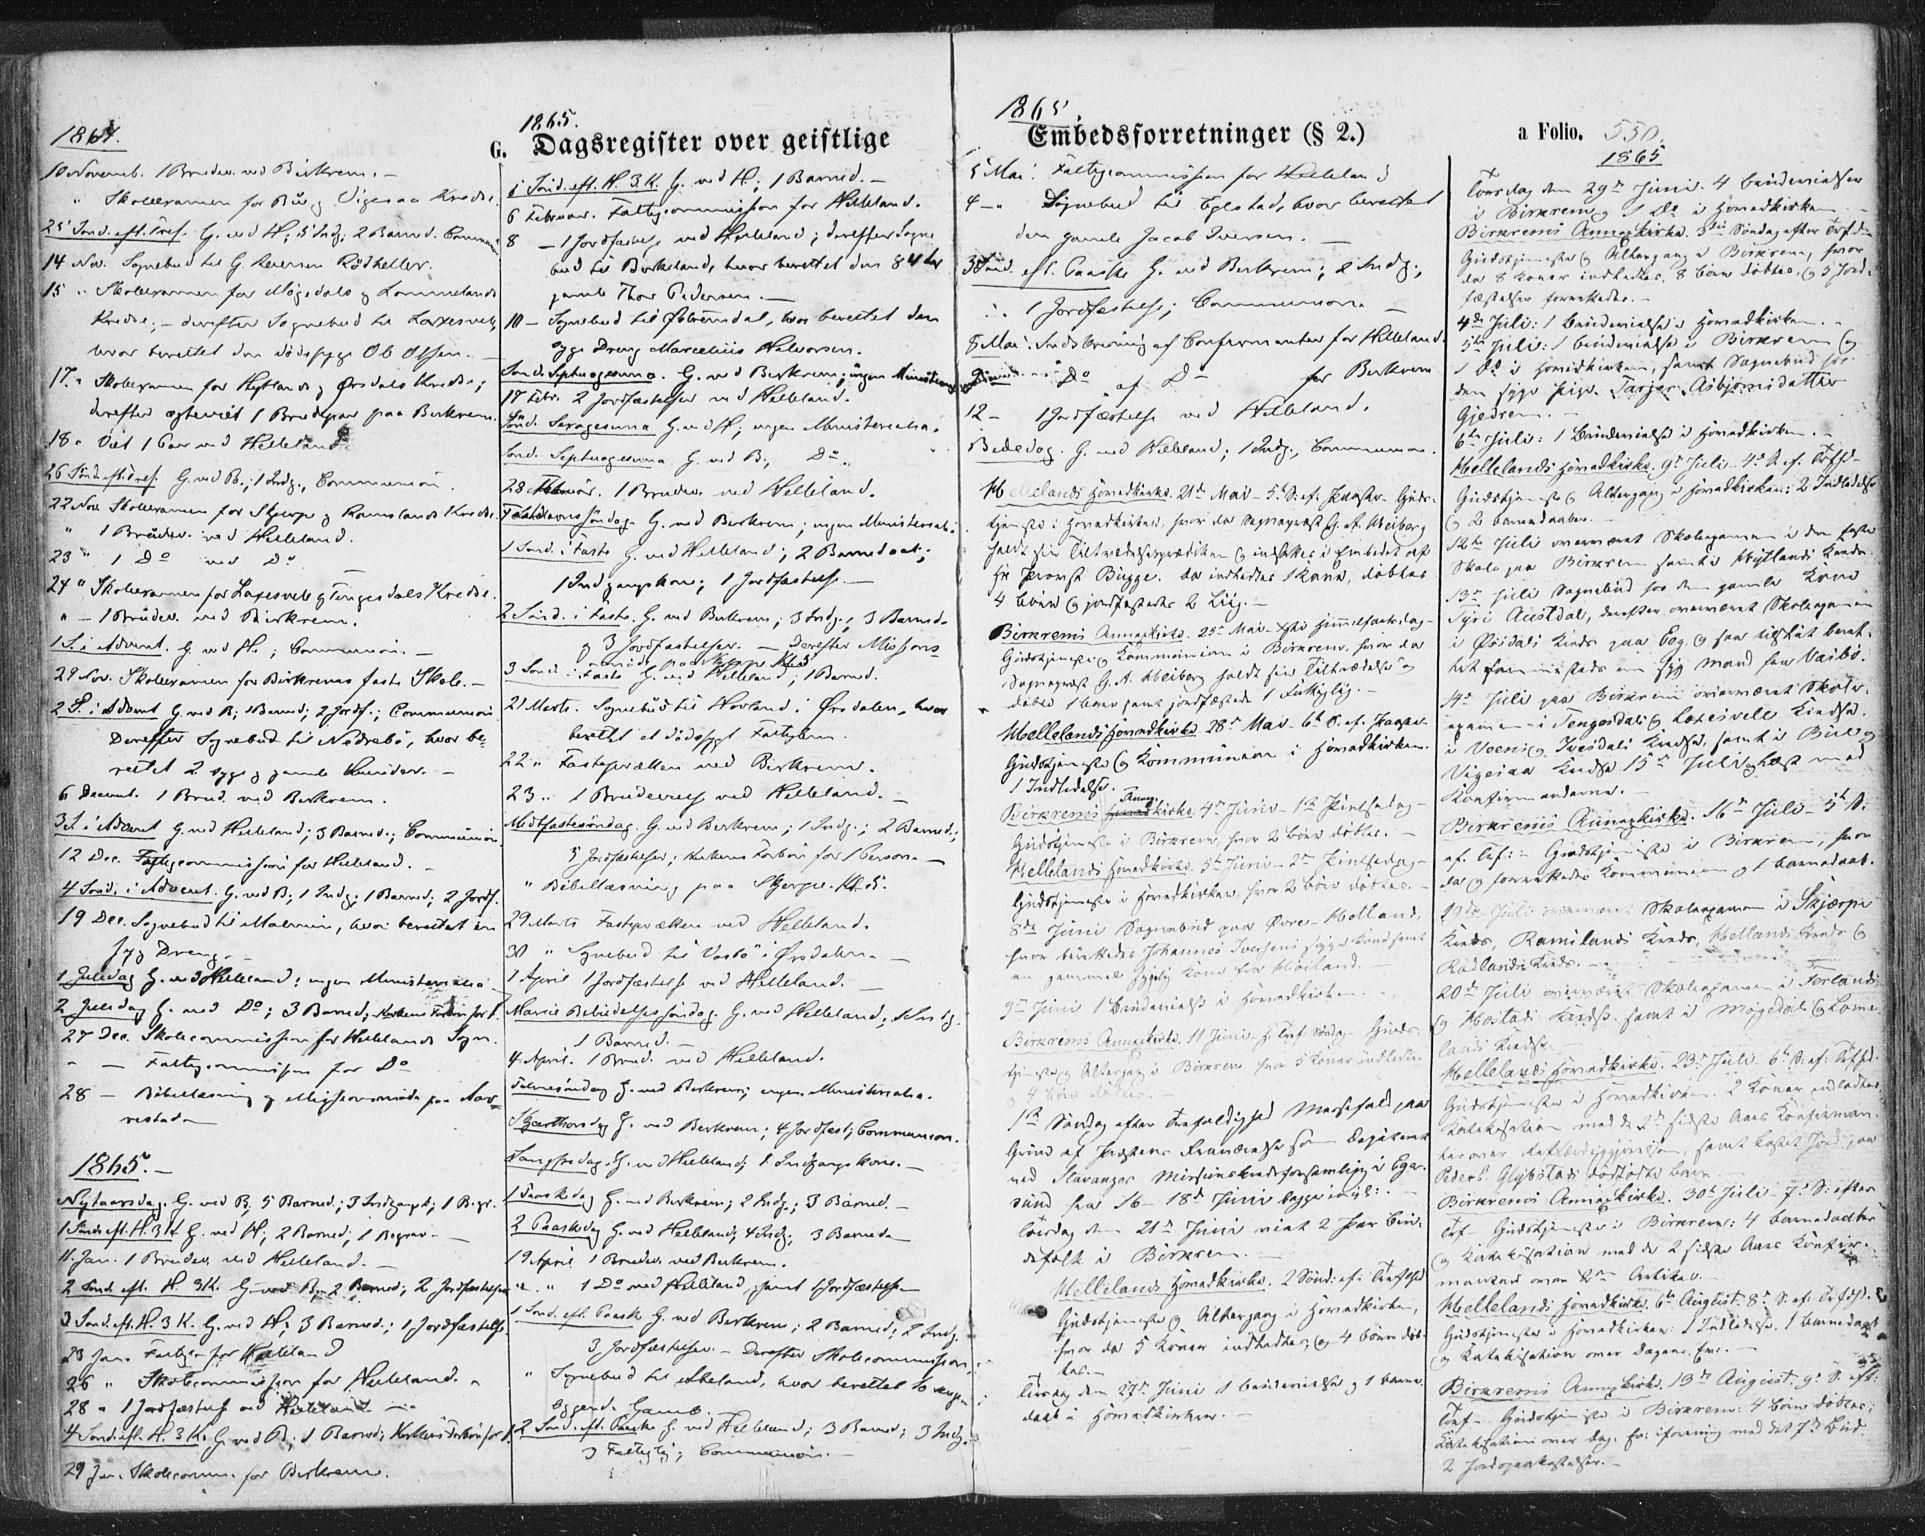 1864.
10 Novemb. 1 Brudev. ved Birkrem. -
" Skoleexamen for Bue og Vigesaa Kredse.
25 Sond. eft. Tref. G. ved H; 5 Indg; 2 Barned. Commun
14 Nov. Sognebud til G. Rødkellev.
15 " Skoleexamen for Mögedals og Lommelands
Kredse; - derefter Sognebud til Laxesvele,
hvor berettet den dødssyge Ole Olsen. -
17. " Skoleexamen for Hytlands og Örsdals Kredse;
derefter ægteviet 1 Brudepar paa Birkrem.
18 " Viet 1 Par ved Helleland.
26 Sond. eft. Tref. G. ved B.; 1 Indg., Communion.
22 Nov. Skoleexamen for Skjerpe og Ramslands Kredse.
" 1 Brudev. ved Helleland.
23 " 1 Do ved Do
24 " Skoleexamen for Laxesvele og Tengesdals Kredse.
" - 1 Brudev. ved Birkrem.
1 S. i Advent. G. ved H; Communion. -
29 Nov. Skoleexamen for Birkrems faste Skole. -
2 S. i Advent G. ved B; 1 Barned; 2 Jordf.; Communion
Derefter Sognebud til Nedrebö, hvor be-
rettet 2 syge og gamle Qvinder. -
6 Decemb. 1 Brud. ved Birkrem.
3 S. i Advent G. ved Helleland; 3 Barned.; Communion.
12 Dec. Fattigcommission for Helleland. -
4 Sond. i Advent. G. ved B; 1 Indg; 1 Barned; 2 Jordf.
19 Dec. Sognebud til Malmin, hvor berettet en
syg Dreng. -
1 Juledag G. ved Helleland; ingen Ministerialia -
2 Juledag G. ved Do; 3 Barned; Kirkens Forbön for 1.
27 Dec. Skolecommission for Hellelands Sogn.
" - Fattigcommission for Do
28 - Bibellæsning og Missionsmöde paa Aar-
restad -
1865. -
Nytaarsdag G. ved B; 5 Barned; 3 Indgangsk; 1 Begr.
1 Sond. eft. H. 3 K G. ved H; 2 Barned; 1 Begrav. -
11 Jan. 1 Brudev. ved Helleland. -
2 Sond. eft. H. 3 K. G. ved B; 2 Barned; 2 Jordfæstelser
3 Sond. eft. H. 3 K. G. ved H; 3 Barned.; 1 Jordfæstelse.
23 Jan. Fattig for Helleland
26 " Skolecommission for Helleland. "
28 " 1 Jordfæstelse ved Helleland -
4 Sond. eft. H. 3 K. G. ved B; 1 Barned; Kirkens Forbön for 1.
29 Jan. Skolecomm. for Birkrem.
1865.
G. Dagsregister over geistlige
5 Sond. eft. H. 3 K. G. ved H; 1 Barned. -
6 Februar. Fattigcommission for Helleland.
8 - 1 Jordfæstelse ved Helleland; derefter Sogne
bud til Birkeland, hvor berettet den 84 Aar
gamle Thor Pedersen. -
10 - Sognebud til Östremdal, hvor berettet den
syge Dreng Marcelius Halvorsen.
Sond. Septuagesima. G. ved Birkrem; ingen Ministerialia
17 Febr. 2 Jordfæstelser ved Helleland.
Sönd. Sexagesima G. ved H; ingen Ministerialia.
Sond. Septuagesima G. ved B; Do "
28 Februar. 1 Brudev. ved Helleland.
Fastelavnssöndag. G. ved Birkrem; ingen Ministerialia
1 Sond. i Faste G. ved Helleland; 2 Barnedaab;
1 Indgangskone; 1 Jordfæstelse. -
2 Sönd. i Faste. G. ved Birkrem; 3 Indg.; 3 Barned.
og 3 Jordfæstelser. - Derefter Missions-
möde paa Skjerpe Kl. 5
3 Sond. i Faste G. ved Helleland; 1 Barned.
21 Marts. Sognebud til Hovland i Örsdalen, hvor
berettet et dödssygt Fattiglem.
22 " Fasteprækken ved Birkrem.
23 " 1 Brudevielse ved Helleland. -
Midtfastesöndag. G. ved Birkrem; 1 Indg.; 2 Barned;
3 Jordfæstelser; Kirkens Forbön for 1 Person. -
" Bibellæsning paa Skjerpe. Kl. 5.
29 Marts Fasteprækken ved Helleland.
30 " Sognebud til Vasbö i Örsdalen. -
1 April 1 Jordfæstelse ved Helleland. -
Mariæ Bebudelsessöndag. G. ved Helleland; 1 Indg.
1 Barned. -
4 April. 1 Brud. ved Helleland.
Palmesöndag G. ved Birkrem; ingen Ministerialia.
Skjærthorsdag G. ved Birkrem; 4 Jordfæst; Communion.
Langfredag. G. ved Helleland; 1 Indgangskone. -
1 Paaskedag G. ved Birkrem; 2 Indg; 3 Barned. -
2 Paaskedag G. ved Helleland; 4 Indg; 3 Barned -
19 April 1 Brudev. ved Birkrem.
" " 1 Do ved Helleland, samt 1 Jordfæstelse -
1 Sond. eft. Paask G. ved Birkrem; 2 Barned; 2 Indg.
3 Jordfæstelser. - Derefter Skolecommission
" Sognebud til Abeland, hvor berettet to senge-
liggende Gamle.
2 Sond. eft. Paaske G. ved Helleland; 3 Barned; 3 Indg.
3 Fattiglig; Communion. -
1865.
Embedsforretninger (§ 2.)
5 Mai: Fattigcommission for Helleland
4 - " Sognebud til Eglestad, hvor berettet
den gamle Jacob Iversen. -
3 Sond. eft. Paaske G. ved Birkrem; 2 Indg.;
1 Jordfæstelse; Communion.
8 Mai. Indskrivning af Confirmanter for Helleland.
Do af Do for Birkrem
12 - 1 Jordfæstelse ved Helleland.
Bededag. G. ved Helleland; 1 Indg., Communion.
Hellelands Hovedkirke. 21de Mai - 5te S. ef. Paaske. Guds-
tjeneste i Hovedkirken, hvor da Sognepræst G. A. Meiberg
holdt sin Tiltrædelsesprædiken og indsattes i Embedet af
Hr Provst Bugge. Da indlededes 1 Kone, döbtes
4 Börn og jordfæstedes 2 Liig. -
Birkrems Annexkirke. 25de Mai - Xsti Himmelfartsdag -
Gudstjeneste og Kommunion i Birkrem, hvor da
Sognepræst G. A. Meiberg holdt sin Tiltrædelse og
döbte 1 Barn samt jordfæstede 1 Fattiglig. -
Hellelands Hovedkirke. 28de Mai - 6te S. ef. Paaske.
Gudstjeneste og Kommunion i Hovedkirken.
1 Indledelse.
Birkrems Annexkirke. 4de Juni - 1ste Pintsedag -
Gudstjeneste i Birkrem, hvor 2 Börn döbtes. -
Hellelands Hovedkirke. 5te Juni - 2den Pintsedag -
Gudstjeneste i Hovedkirken, hvor 2 Börn döbtes. -
8de Juni Sognebud paa Övre-Hetland,
hvor berettedes Johannes Iversens syge Kone samt
en gammel sygelig Kone fra Möiland.
9de Juni 1 Brudevielse i Hovedkirken.
Birkrems Annexkirke. 11 Juni - H. Tref. Söndag - Guds-
tjeneste og Altergang i Birkrem, hvor 5 Koner indledtes
og 4 Börn döbtes. -
1ste Söndag efter Trefoldighed Messefald paa
Grund af Præstens Fraværelse som Deputeret
ved Stavanger Missionskredsforsamling i Eger-
sund fra 16 - 18de Juni begge incl: -
Onsdag den 21de Juni viet 2 Par Bru-
defolk i Birkrem. -
Hellelands Hovedkirke. 2 Sönd: ef: Trefoldighed
Gudstjeneste og Altergang i Hovedkirken,
hvor da 5 Koner indledtes, og 4 Börn döb-
tes. -
Tirsdag den 27de Juni 1 Brudevielse og 1 Barne-
daab i Hovedkirken. -
a Folio. 550.
1865
Torsdag den 29de Juni. 4 Brudevielser
i Birkrem og 1 Do i Hovedkirken -
Birkrems Annexkirke. 3die Söndag efter Trefold
Gudstjeneste og Altergang i Birkrem, hvor
da 8 Koner indledtes, 8 Börn döbtes og 3 Jord-
fæstelser forrettedes. -
4de Juli: 1 Brudevielse i Hovedkirken. -
5te Juli: 1 Brudevielse i Birkrem og
1 Do i Hovedkirken, samt Sognebud hos
den syge Pige Tarjer Asbjörnsdatter
Gjedrem. -
6te Juli: 1 Brudevielse i Hovedkirken. -
Hellelands Hovedkirke. 9de Juli - 4de S. ef. Trefold -
Gudstjeneste og Altergang i Hovedkirken; 2 Indledelser
og 2 Barnedaaber. -
12te Juli overværet Skoleexamen i den faste
Skole paa Birkrem samt i Hytlands Kreds
13de Juli Sognebud hos den gamle Kone
Tyri Austdal, derefter overværet Skoleexamen
i Örsdals Kreds paa Eeg og paa tilstöt beret-
tet sammesteds en syg Mand fra Vasbö.
14de Juli paa Birkrem overværet Skole-
examen i Tengesdals og Laxesvele Kredse.
i Veens og Ivesdals Kredse, samt i Bue og
Vigesaa Kredse 15de Juli og læst med
Konfirmanderne. -
Birkrems Annexkirke. 16de Juli - 5te S.
ef. Tref: - Gudstjeneste i Birkrem, hvor
da og forrettedes Kommunion og 1 Barnedaab.
19de Juli overværet Skoleexamen i Skjærpe
Kreds, Ramslands Kreds, Hetlands Kreds og
Rødlands Kreds. -
20de Juli overværet Skoleexamen i Terlands
og Mostads Kredse samt i Mögedals og Lomme-
lands Kredse. -
Hellelands Hovedkirke. 23de Juli. 6te S: ef: Trefold.
Gudstjeneste i Hovedkirken. 2 Koner indledtes,
Katekisation med de 2de sidste Aars Konfirman-
ter over samt kastet Jord paa
Peder Glybstads dödfödte Barn
Birkrems Annexkirke. 30te Juli - 7de S: efter
Tref. Gudstjeneste i Birkrem: 4 Barnedaaber
og Katekisation med de 2 sidste Aars Konfir-
mander over 2den Artikel. -
Hellelands Hovedkirke. 6te August. 8de S. ef: Trefold.
Gudstjeneste i Hovedkirken: 1 Indledelse, 1 Barnedaab
og Katekisation over Dagens Ev. -
Birkrems Annexkirke. 13de August. 9de S. eft:
Tref. - Gudstjeneste i Birkrem: 4 Börn döbtes;
Katekisation over Dag. Ev: i forening med det 7de Bud.
2 Jordspaakastelser. -